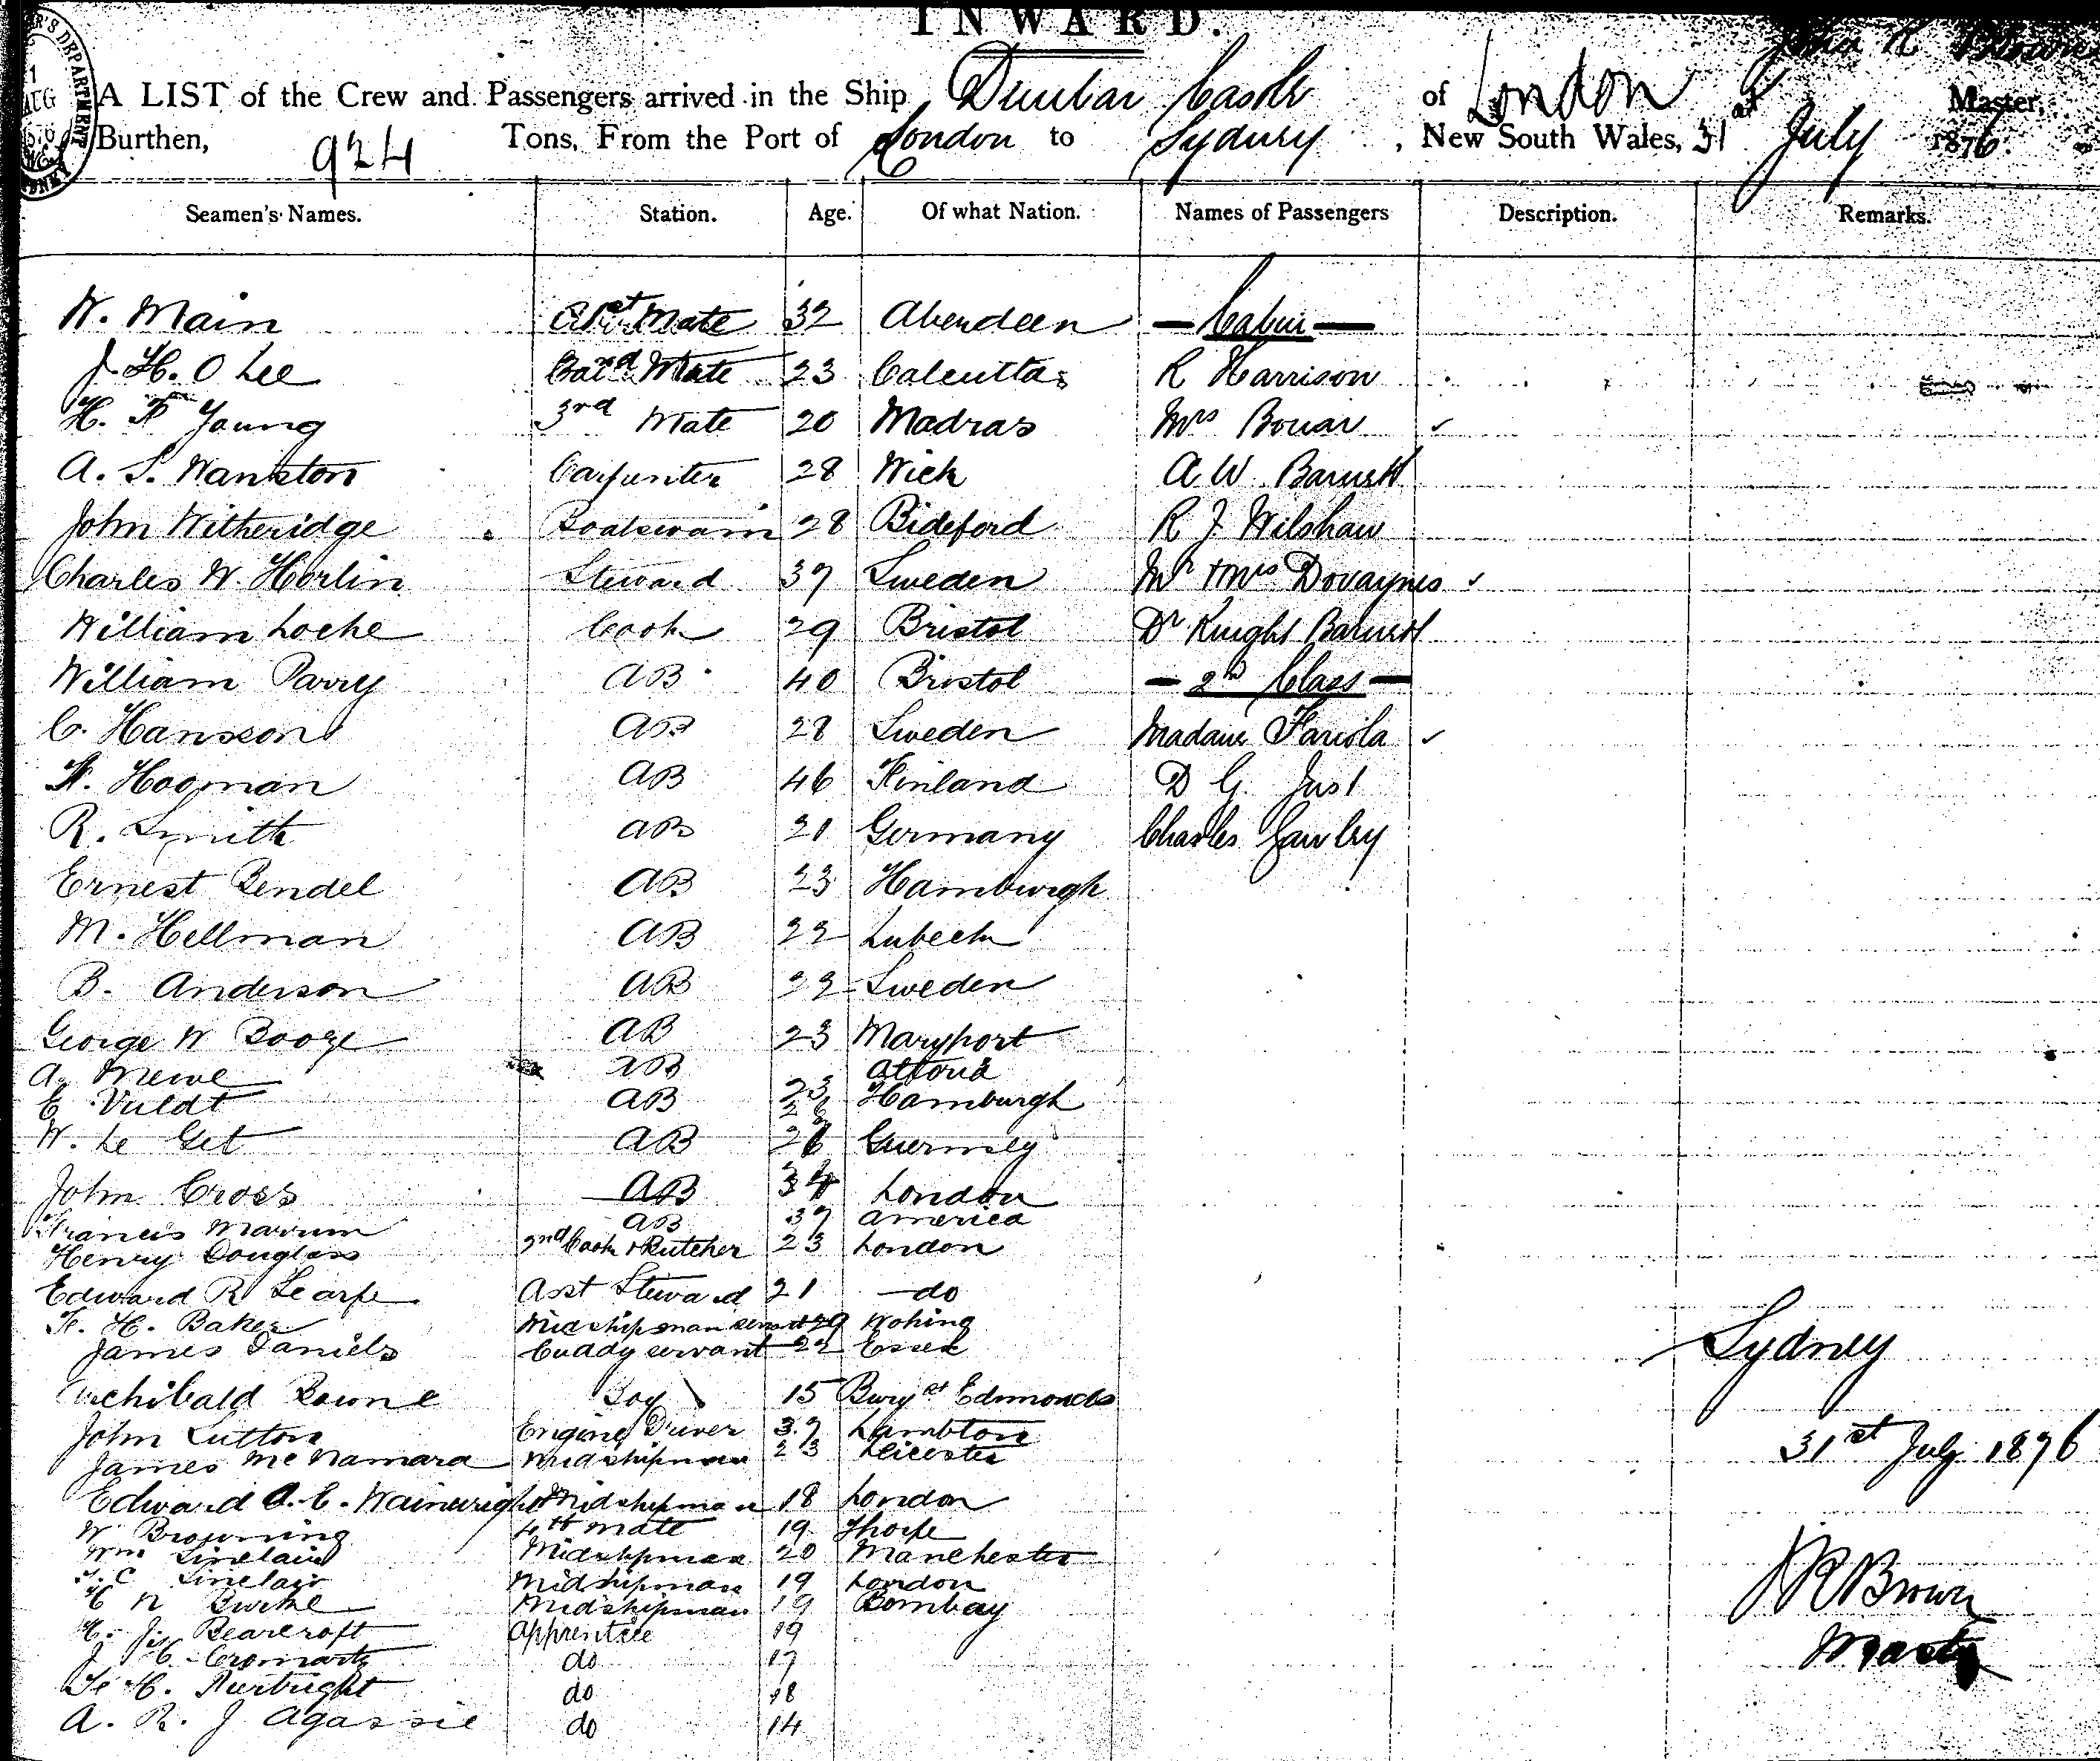 INWARD.
John R Brown
A LIST of the Crew and Passengers arrived in the Ship Dunbar Castle of London Master,
Burthen, 924 Tons, From the Port of London to Sydney, New South Wales, 31st July 1876.
Seamen's Names. Station. Age. Of what Nation. Names of Passengers Description. Remarks.
W. Main 1st Mate 32 Aberdeen — Cabin —
J. H. O Lee 2nd Mate 23 Calcutta R Harrison
H. F Young 3rd Mate 20 Madras Mrs Bouar ✓
A. S. Wankston Carpunter 28 Wick A W Barnett
John Witheridge Boatswain 28 Bideford R J Wilshaw
Charles W. Horlin Steward 37 Sweden Mr & Mrs Dovaynes ✓
William Locke Cook 29 Bristol Dr Knight Barnett
William Parry AB 40 Bristol — 2nd Class —
C. Hansson AB 28 Sweden Madame Fariola ✓
F. Hogman AB 46 Finland D G Just
R. Smith AB 21 Germany Charles Gawley
Ernest Rendel AB 23 Hamburgh
M. Hellman AB 22 Lubeck
B. Anderson AB 22 Sweden
George W Booze AB 23 Maryport
A. Mewe AB 23 Altona
E Vuldt AB 26 Hamburgh
W. Le Get AB Guernsey
John Cross AB 34 London
Francis Marrum AB 37 America
Henry Douglass 2nd Cook & Butcher 23 London
Edward R Searfe Asst Steward 21 do
F. H. Baker Midshipman servt 29 Woking
James Daniels Cuddy servant 22 Essex
Sydney
Archibald Rowne Boy 15 Bury st Edmonds
John Lutton Engine Driver 37 Lambton
James McNamara Midshipman 23 Leicester
31st July 1876
Edward A. C. Wainwright Midshipman 18 London
W Browning 4th Mate 19 Thorpe
Wm Sinclair Midshipman 20 Manchester
C Sinclair Midshipman 19 London
E N Burke Midshipman 19 Bombay
JR Brown
H. J. Bearcroft Apprentice 19
J H. Cromarty do 17
Master
H. Kurtright do 18
A. R. J Agassie do 14